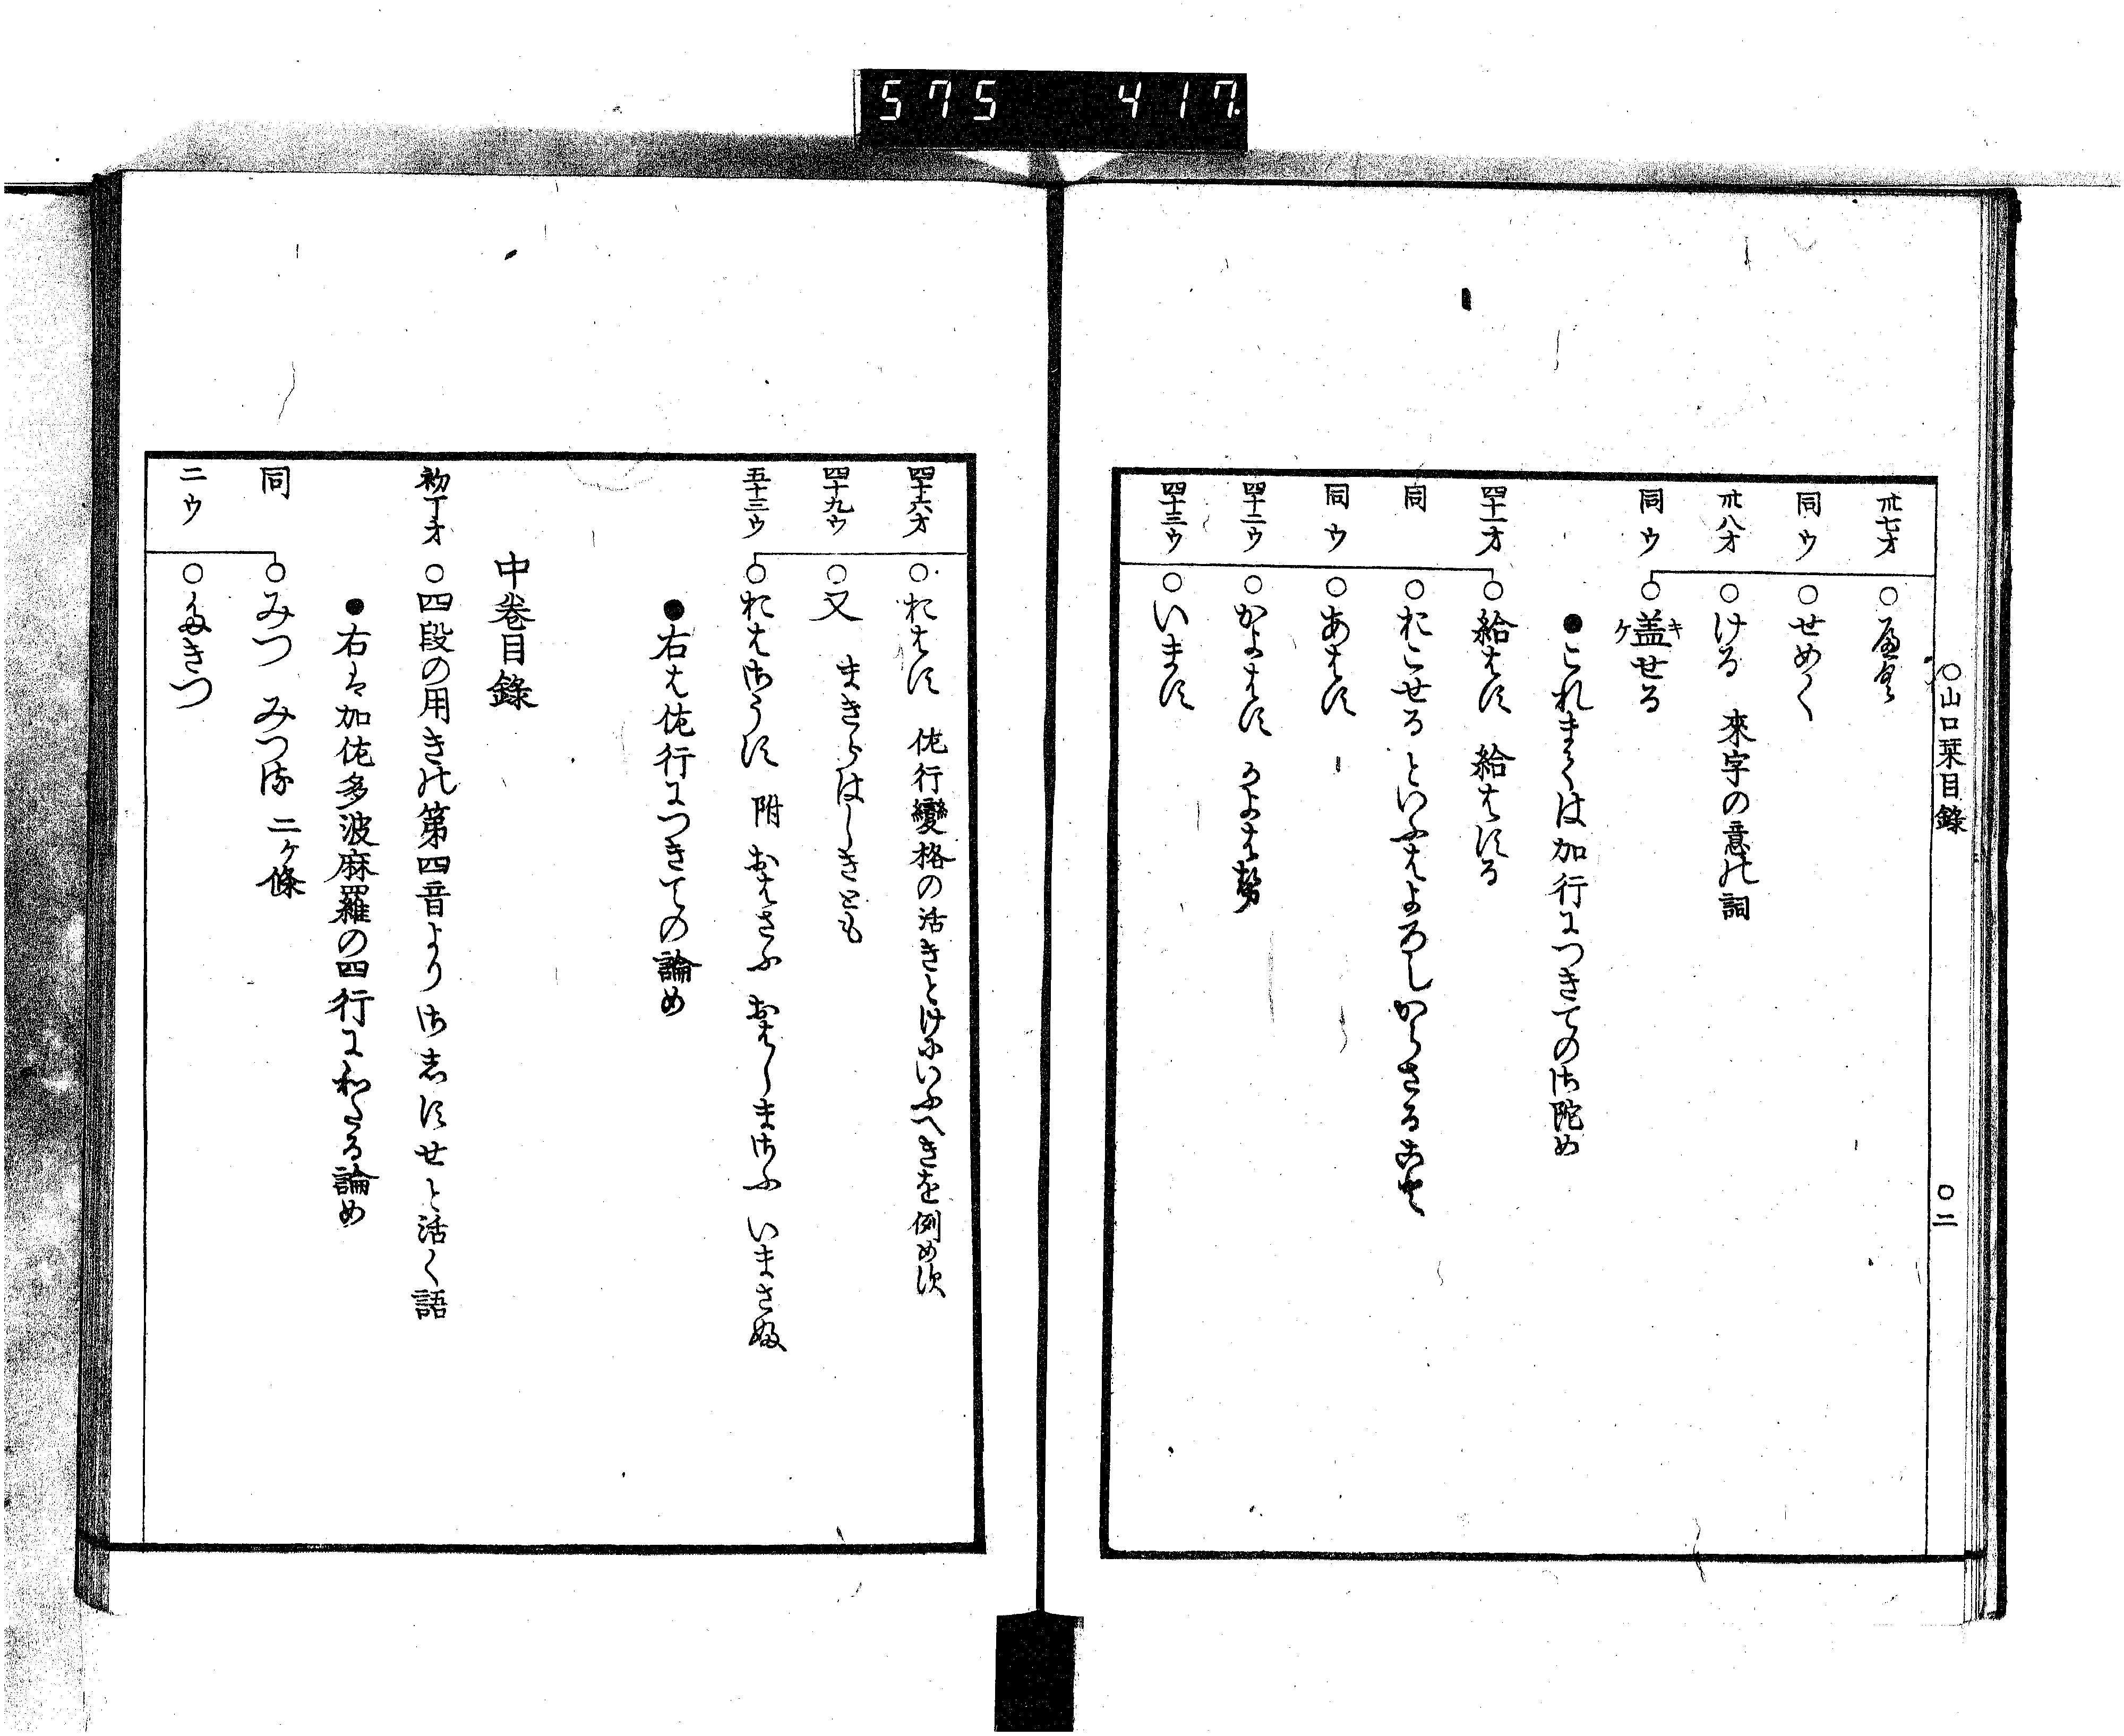 575 417
○山口栞目録 ○二
卅七オ
同ウ ○せめく
卅八オ ○ける 來字の意の詞
同ウ ○盖せる キ ケ
●これまては加行につきてのさだめ
四十一オ ○給はす 給はする
同 ○おこせる といふはよろしからさる
同ウ ○あはす
四十二ウ ○かよはす
四十三ウ ○います
四十六オ ○おはす 佐行變格の活きとけにいふへきを例めす
四十九ウ ○又 まきらはしきとも
五十三ウ ○おはさうす 附 おはさふ おはしまさふ いまさふ
●右は佐行につきての論め
中卷目錄
初丁オ ○四段の用きの第四音よりさしすせと活く語
●右は加佐多波麻羅の四行にわたる論め
同 ○みつ みつる 二ヶ條
二ウ